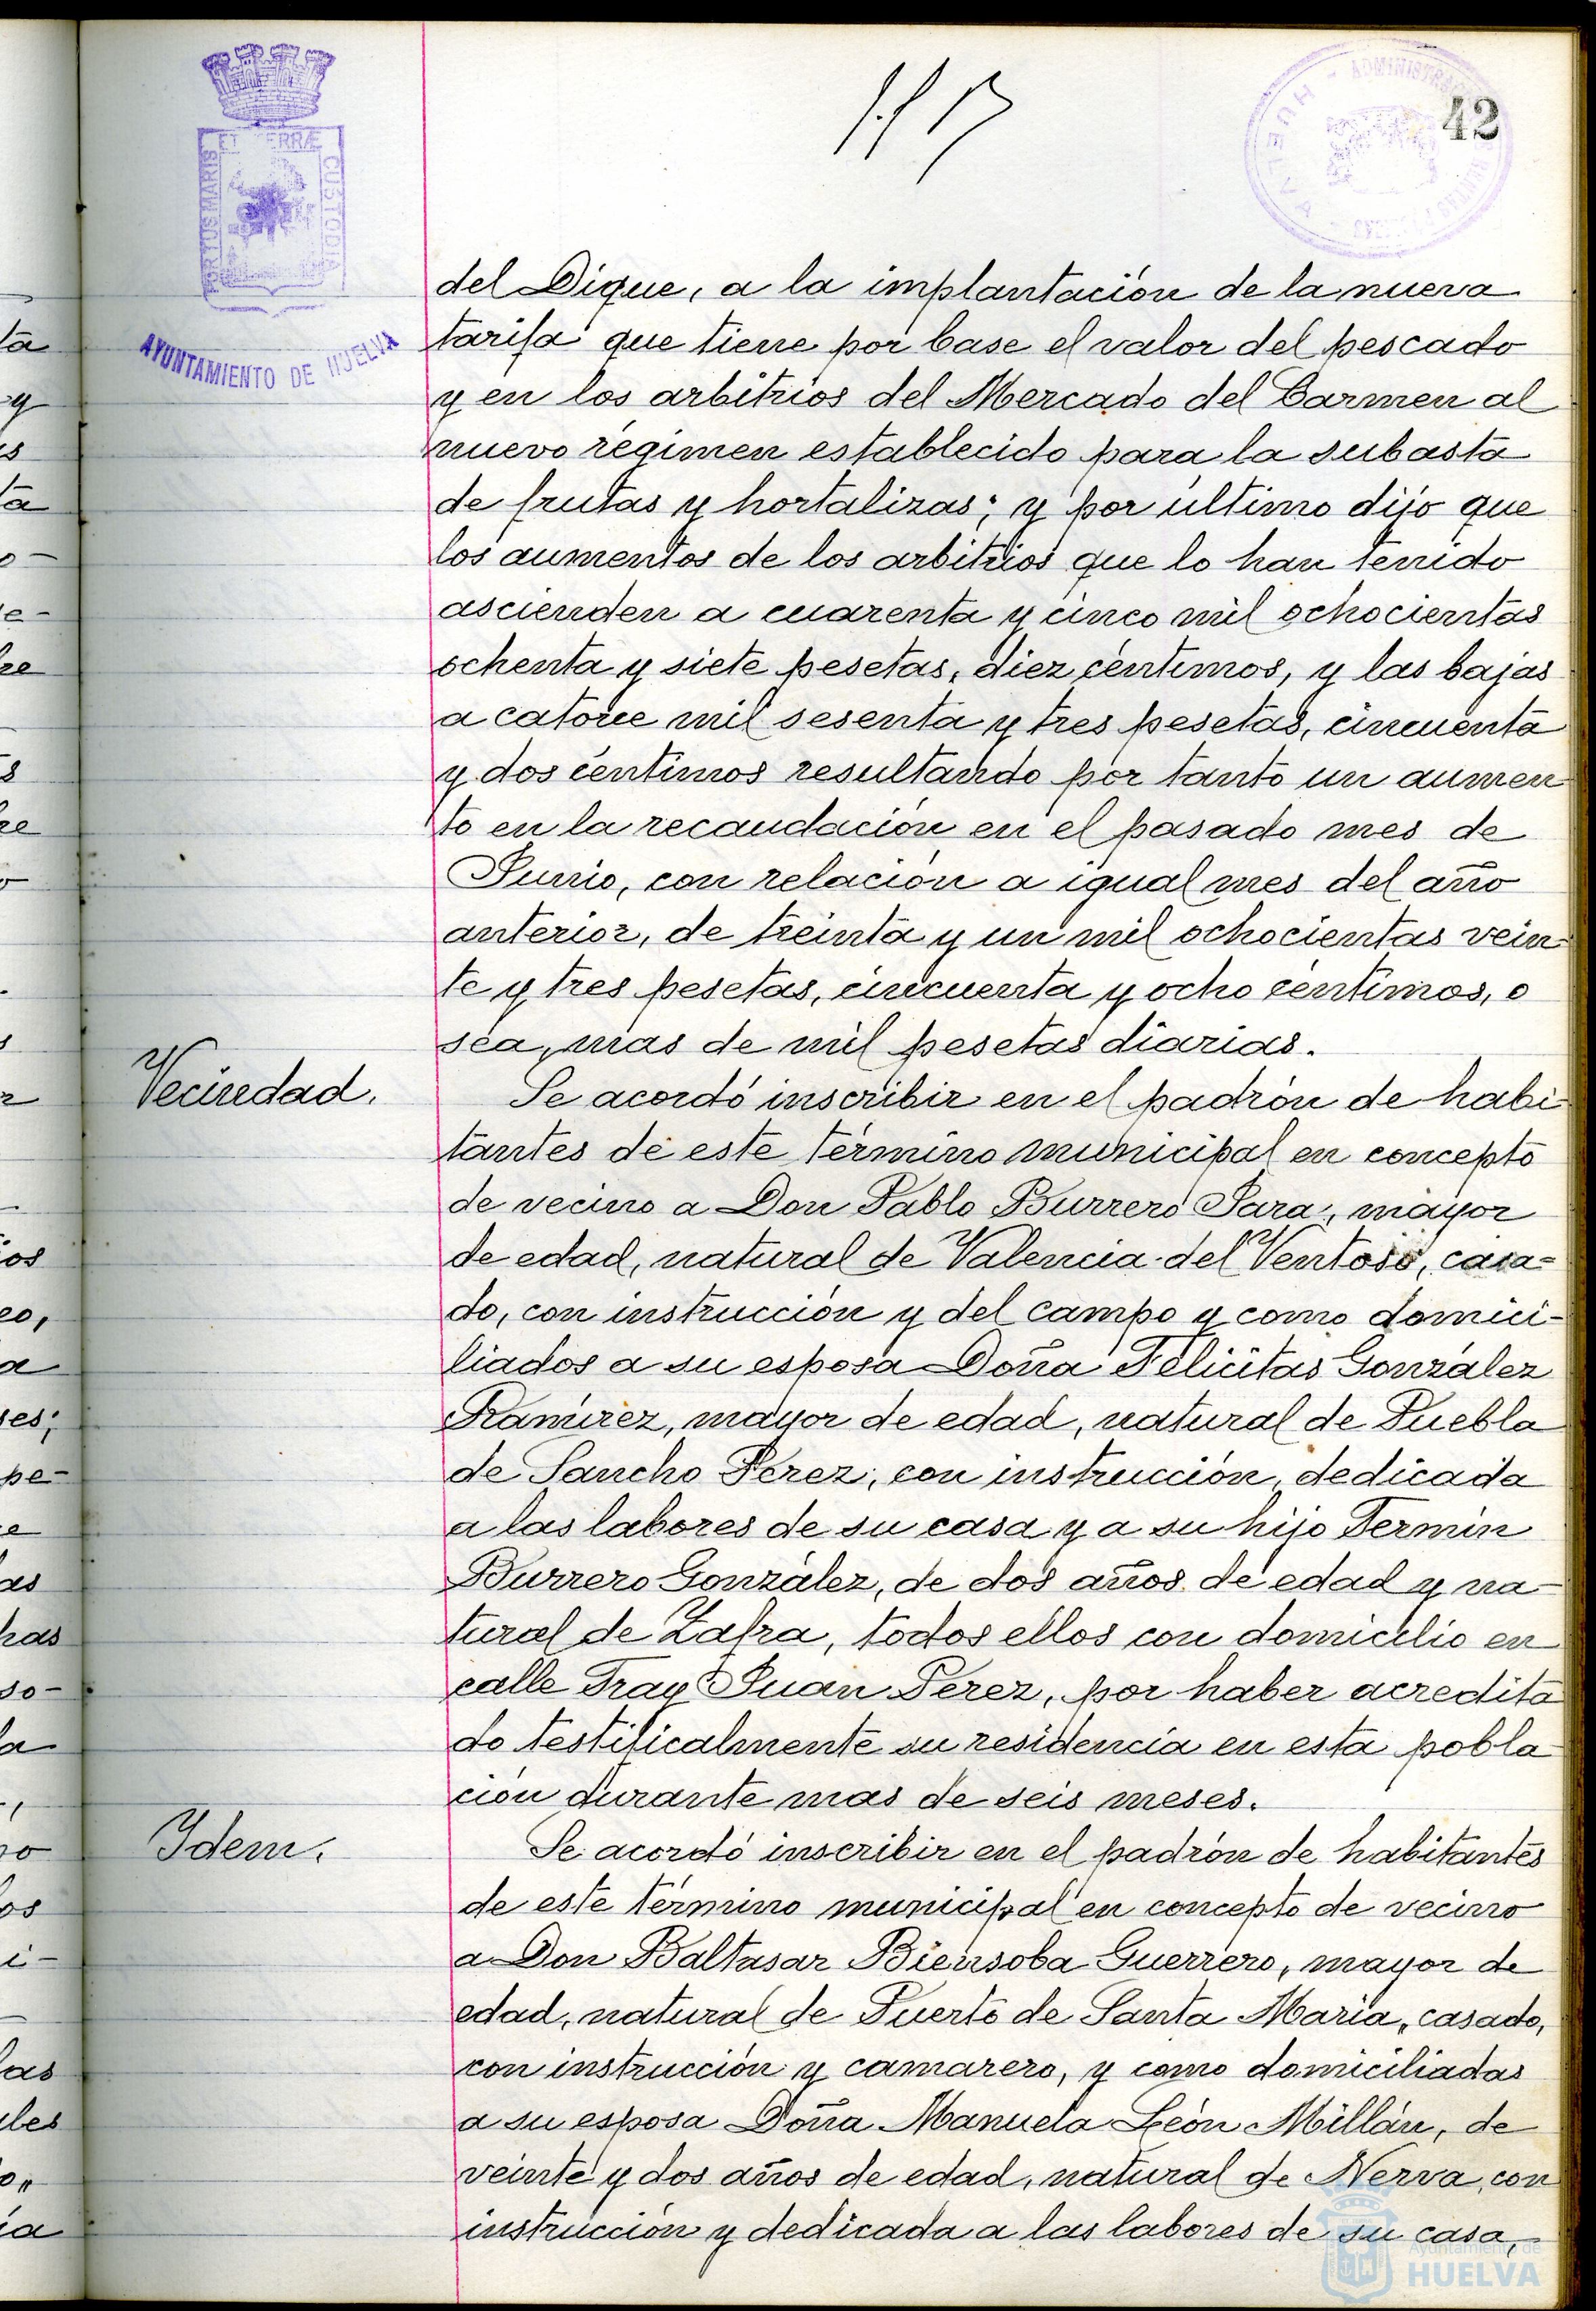 42
PORTUS MARIS ET TERRÆ CUSTODIA
AYUNTAMIENTO DE HUELVA
HUELVA
del Dique, a la implantación de la nueva
tarifa que tiene por base el valor del pescado
y en los arbitrios del Mercado del Carmen al
nuevo régimen establecido para la subasta
de frutas y hortalizas; y por último dijo que
los aumentos de los arbitrios que lo han tenido
ascienden a cuarenta y cinco mil ochocientas
ochenta y siete pesetas, diez céntimos, y las bajas
a catorce mil sesenta y tres pesetas, cincuenta
y dos céntimos resultando por tanto un aumen-
to en la recaudación en el pasado mes de
Junio, con relación a igual mes del año
anterior, de treinta y un mil ochocientas vein-
te y tres pesetas, cincuenta y ocho céntimos, o
sea, mas de mil pesetas diarias.
Vecindad.
Se acordó inscribir en el padrón de habi-
tantes de este término municipal en concepto
de vecino a Don Pablo Burrero Jara, mayor
de edad, natural de Valencia del Ventoso, casa-
do, con instrucción y del campo y como domici-
liados a su esposa Doña Felicitas González
Ramírez, mayor de edad, natural de Puebla
de Sancho Pérez, con instrucción, dedicada
a las labores de su casa y a su hijo Fermín
Burrero González, de dos años de edad y na-
tural de Zafra, todos ellos con domicilio en
calle Fray Juan Pérez, por haber acredita
do testificalmente su residencia en esta pobla-
ción durante mas de seis meses.
Idem.
Se acordó inscribir en el padrón de habitantes
de este término municipal en concepto de vecino
a Don Baltasar Biensoba Guerrero, mayor de
edad, natural de Puerto de Santa María, casado,
con instrucción y camarero, y como domiciliadas
a su esposa Doña Manuela León Millán, de
veinte y dos años de edad, natural de Nerva, con
instrucción y dedicada a las labores de su casa,
Ayuntamiento de
HUELVA